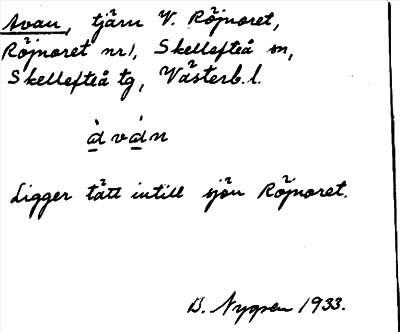 Avan, tjärn V. Röjnoret,
Röjnoret nr 1, Skellefteå sn,
Skellefteå tg, Västerb. l.
àvàn
Ligger tätt intill sjön Röjnoret.
D. Nygren 1933.